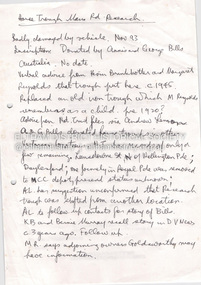 Horse Trough Main Rd Research
Badly damaged by vehicle. Nov 93
Inscription: Donated by Annis and George Bills
Australia. No date
Verbal advice from Horin and Margaret
Reynolds that trough put here c. 1985
Replaced an old iron trough which M Reynolds
remembers as a child pre 1930s
Advice from Rd Trust files via Andrew
A & G Bills donated horse troughs
in Victoria records of only a
few remaining, Lansdowne St, N of Wellington Pde,
Daylesford, one formerly in Royal Pde was removed
to MCC depot, present status unknown
AL has suggestion unconfirmed that Research
trough was shifted from another location
AL to follow up contacts for story of Bills
KB and Bruce Murray recall story in DV News
c 3 years ago. Follow up
M.R. says adjoining owners Goldsworthy may
have information